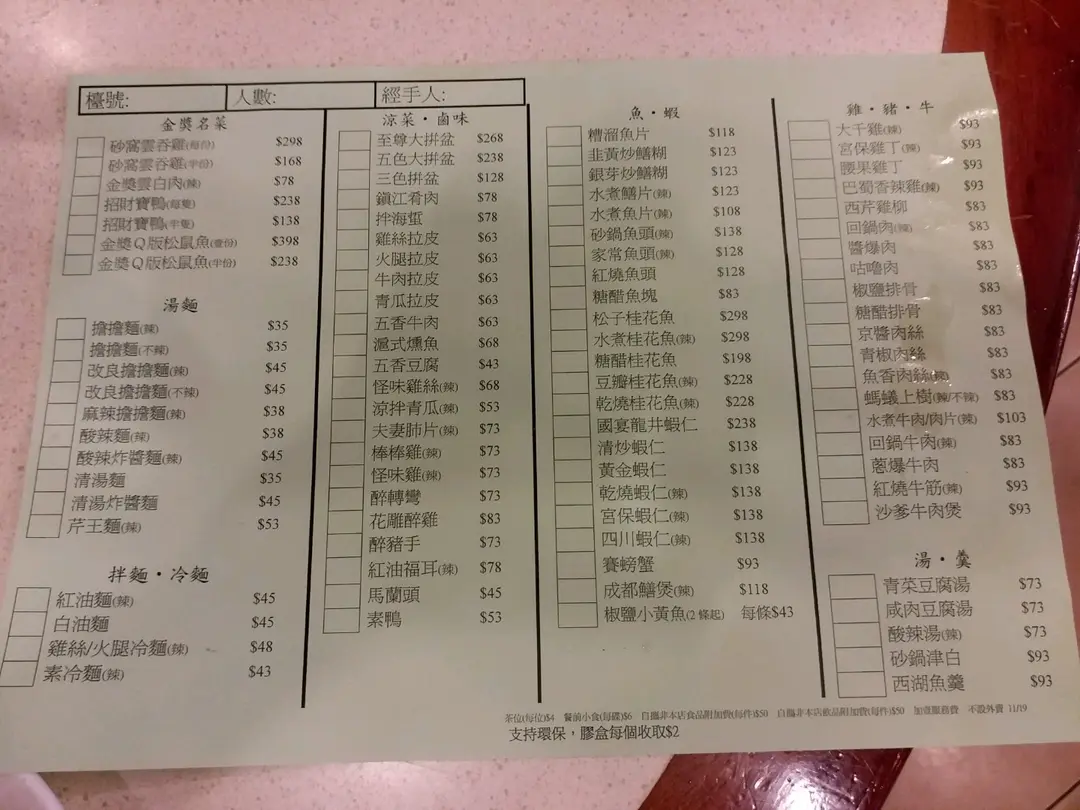 檯號:
人數:
經手人:
金獎名菜
砂窩雲吞雞(每份) $298
砂窩雲吞雞(半份) $168
金獎雲白肉(辣) $78
招財寶鴨(每隻) $238
招財寶鴨(半隻) $138
金獎Q版松鼠魚(壹份) $398
金獎Q版松鼠魚(半份) $238
湯麵
擔擔麵(辣) $35
擔擔麵(不辣) $35
改良擔擔麵(辣) $45
改良擔擔麵(不辣) $45
麻辣擔擔麵(辣) $38
酸辣麵(辣) $38
酸辣炸醬麵(辣) $45
清湯麵 $35
清湯炸醬麵 $45
芹王麵(辣) $53
拌麵·冷麵
紅油麵(辣) $45
白油麵 $45
雞絲/火腿冷麵(辣) $48
素冷麵(辣) $43
涼菜·鹵味
至尊大拼盆 $268
五色大拼盆 $238
三色拼盆 $128
鎮江肴肉 $78
拌海蜇 $78
雞絲拉皮 $63
火腿拉皮 $63
牛肉拉皮 $63
青瓜拉皮 $63
五香牛肉 $63
滬式燻魚 $68
五香豆腐 $43
怪味雞絲(辣) $68
涼拌青瓜(辣) $53
夫妻肺片(辣) $73
棒棒雞(辣) $73
怪味雞(辣) $73
醉轉彎 $73
花雕醉雞 $83
醉豬手 $73
紅油福耳(辣) $78
馬蘭頭 $45
素鴨 $53
魚·蝦
糟溜魚片 $118
韭黃炒鱔糊 $123
銀芽炒鱔糊 $123
水煮鱔片(辣) $123
水煮魚片(辣) $108
砂鍋魚頭(辣) $138
家常魚頭(辣) $128
紅燒魚頭 $128
糖醋魚塊 $83
松子桂花魚 $298
水煮桂花魚(辣) $298
糖醋桂花魚 $198
豆瓣桂花魚(辣) $228
乾燒桂花魚(辣) $228
國宴龍井蝦仁 $238
清炒蝦仁 $138
黃金蝦仁 $138
乾燒蝦仁(辣) $138
宮保蝦仁(辣) $138
四川蝦仁(辣) $138
賽螃蟹 $93
成都鱔煲(辣) $118
椒鹽小黃魚(2條起) 每條$43
雞·豬·牛
大千雞(辣) $93
宮保雞丁(辣) $93
腰果雞丁 $93
巴蜀香辣雞(辣) $93
西芹雞柳 $83
回鍋肉(辣) $83
醬爆肉 $83
咕嚕肉 $83
椒鹽排骨 $83
糖醋排骨 $83
京醬肉絲 $83
青椒肉絲 $83
魚香肉絲(辣) $83
螞蟻上樹(辣/不辣) $83
水煮牛肉/肉片(辣) $103
回鍋牛肉(辣) $83
蔥爆牛肉 $83
紅燒牛筋(辣) $93
沙爹牛肉煲 $93
湯·羹
青菜豆腐湯 $73
咸肉豆腐湯 $73
酸辣湯(辣) $73
砂鍋津白 $93
西湖魚羹 $93
茶位(每位)$4 餐前小食(每碟)$6 自攜非本店食品附加費(每件)$50 自攜非本店飲品附加費(每件)$50 加壹服務費 不設外賣 11/19
支持環保,膠盒每個收取$2